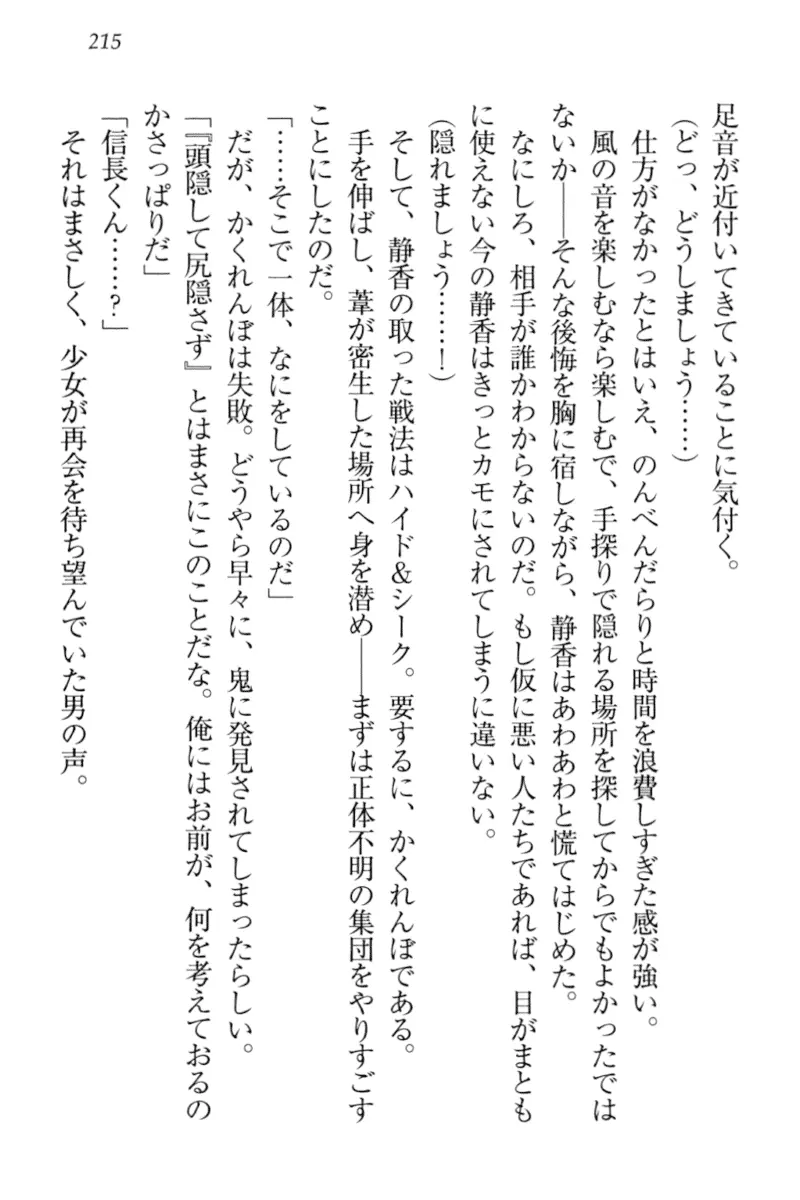 215
足音が近付いてきていることに気付く。
(どっ、どうしましょう……)
仕方がなかったとはいえ、のんべんだらりと時間を浪費しすぎた感が強い。
風の音を楽しむなら楽しむで、手探りで隠れる場所を探してからでもよかったでは
ないか――そんな後悔を胸に宿しながら、静香はあわあわと慌てはじめた。
なにしろ、相手が誰かわからないのだ。もし仮に悪い人たちであれば、目がまとも
に使えない今の静香はきっとカモにされてしまうに違いない。
(隠れましょう……!)
そして、静香の取った戦法はハイド&シーク。要するに、かくれんぼである。
手を伸ばし、葦が密生した場所へ身を潜め――まずは正体不明の集団をやりすごす
ことにしたのだ。
「……そこで一体、なにをしているのだ」
だが、かくれんぼは失敗。どうやら早々に、鬼に発見されてしまったらしい。
「『頭隠して尻隠さず』とはまさにこのことだな。俺にはお前が、何を考えておるの
かさっぱりだ」
「信長くん……?」
それはまさしく、少女が再会を待ち望んでいた男の声。